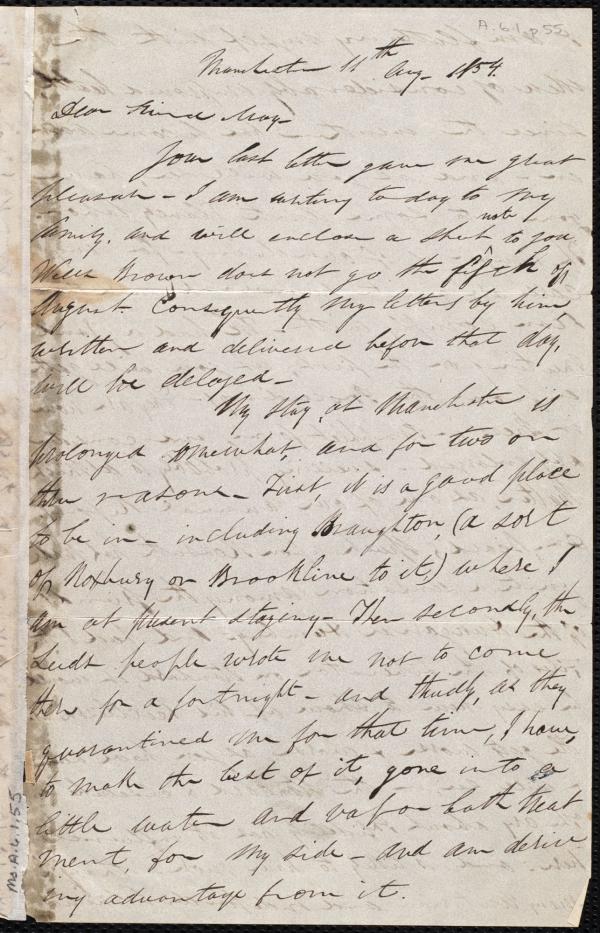 A.6.1 p55
Manchester 11th Aug. 1854.
Dear Friend May—
Your last letter gave me great
pleasure — I am writing to day to my
family, and will enclose a short note to you
Wells Brown does not go the fifth of
August. Consequently my letters by him,
written and delivered before that day,
will be delayed—
My stay at Manchester is
prolonged somewhat, and for two or
three reasons — First, it is a good place
to be in — including Braughton, (a sort
of Roxbury or Brookline to it,) where I
am at present staying — Then secondly, the
Leeds people wrote me not to come
there for a fortnight — and thirdly, as they
quarantined me for that time, I have,
to make the best of it, gone into a
little water and vapor bath treat
ment, for my side — and am deriv
ing advantage from it.
Ms.A.6.1.55